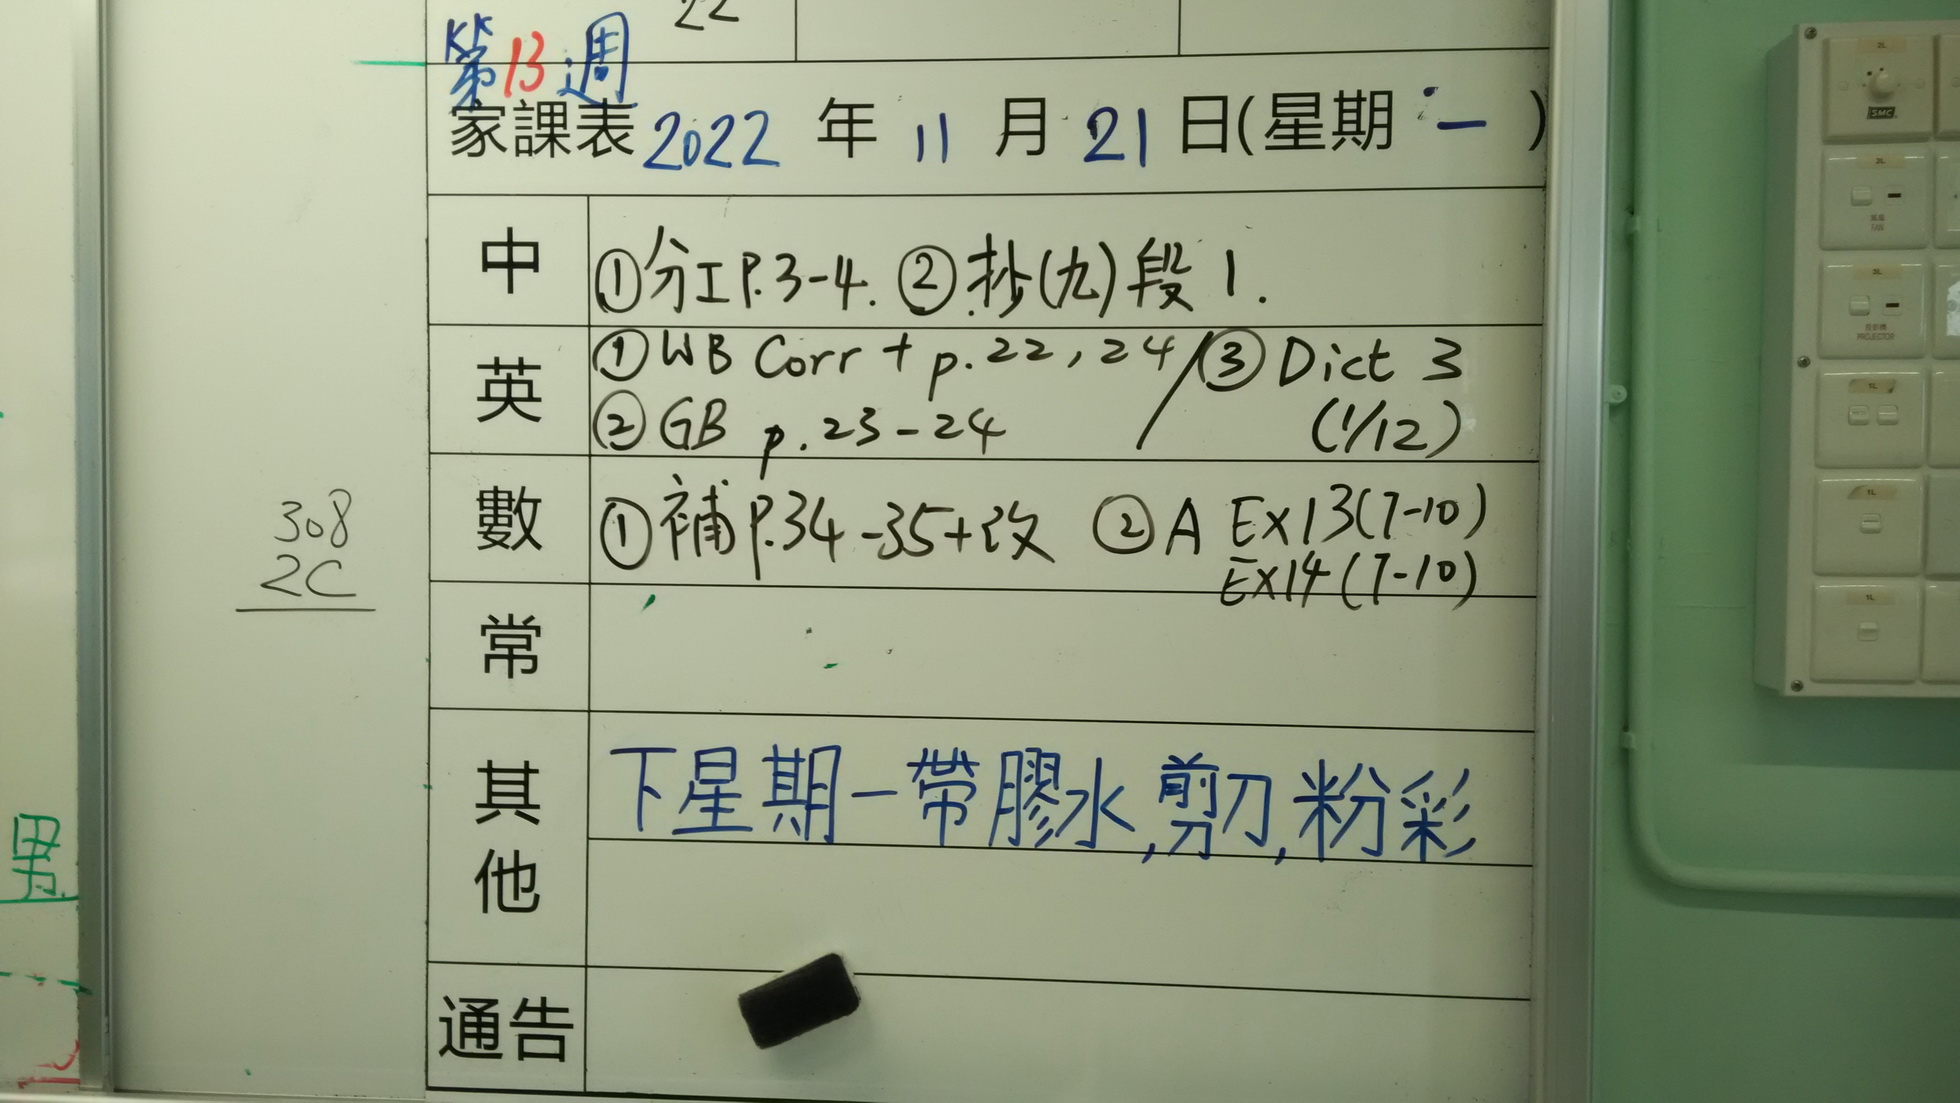 22
第13週
家課表 2022 年 11 月 21 日(星期 一 )
中 ①分工P.3-4. ②抄(九)段1.
英 ①WB Corr + p.22, 24 / ③Dict 3
②GB p.23-24 (1/12)
數 ①補P.34-35+改 ②A Ex13(7-10)
Ex14(7-10)
308
2C
常
其他 下星期一帶膠水,剪刀,粉彩
通告
男
2L
SMC
2L
FAN
3L
投影機
PROJECTOR
1L
1L
1L